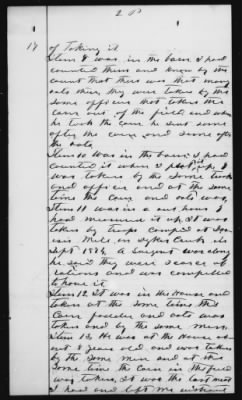 2
17
of taking it
Item 8 was in the barn I had
counted them and know by the
count that there was that many
oats then they were taken by the
same officer that taken the
corn out of the field and when
he took the corn he sent some
after the corn and some after
the oats
Item 10 was in the barn I had
counted it when I put it up. It
was taken by the same troops
and officer and at the same
time the corn and oats was.
Item 11 was in a
had measured it up. It was
taken by troops camped at
Mill on Sykes Creek in
Sept 1864. A Sergent was along
he said they were scarce of
rations and was compelled
to have it
Item 12. It was in the House and
taken at the same time the
corn fodder and oats was
taken and by the same men.
Item 13. He was at the House a
8 years old and was taken
by the same men and at the
same time the corn in the field
was taken. It was the last meat
I had and left me without